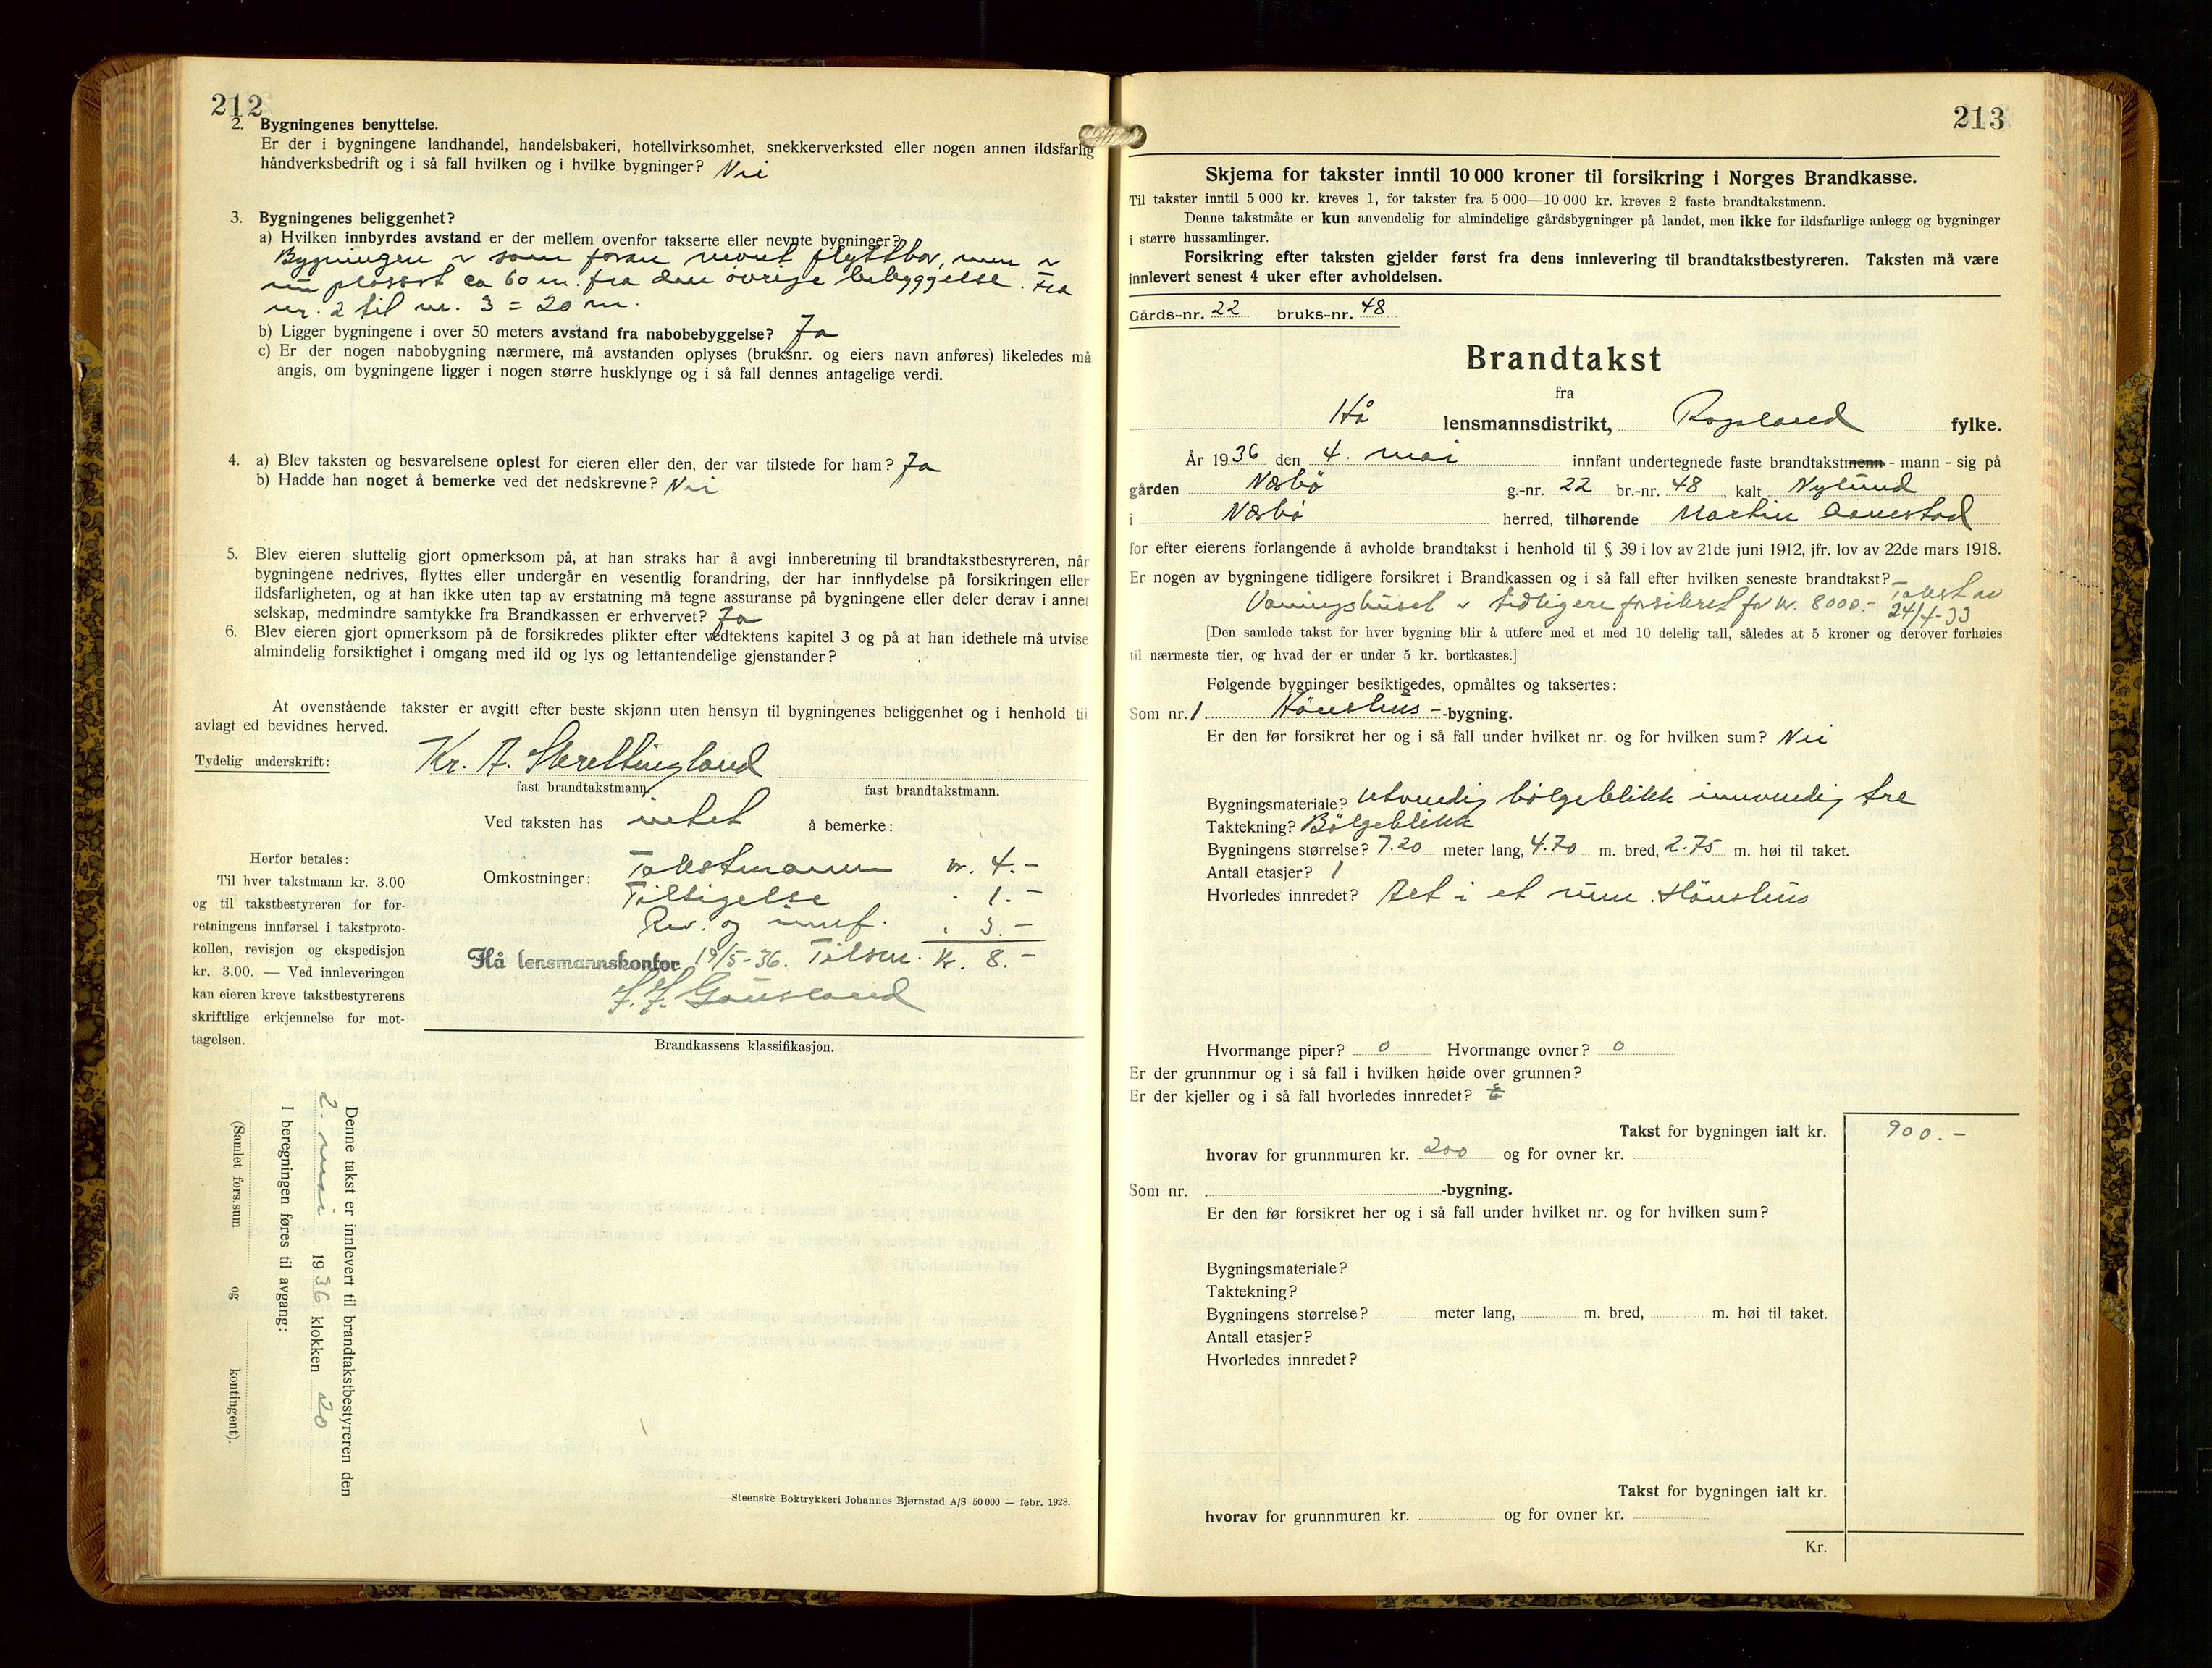 212
2. Bygningenes benyttelse.
Er der i bygningene landhandel, handelsbakeri, hotellvirksomhet, snekkerverksted eller nogen annen ildsfarlig
håndverksbedrift og i så fall hvilken og i hvilke bygninger? Nei
3. Bygningenes beliggenhet?
a) Hvilken innbyrdes avstand er der mellem ovenfor takserte eller nevnte bygninger?
Bygningen er som foran nevnt flyttbar, men er
nu plassert ca 60 m. fra den øvrige bebyggelse. Fra
nr. 2 til nr. 3 = 20 m.
b) Ligger bygningene i over 50 meters avstand fra nabobebyggelse? Ja
c) Er der nogen nabobygning nærmere, må avstanden oplyses (bruksnr. og eiers navn anføres) likeledes må
angis, om bygningene ligger i nogen større husklynge og i så fall dennes antagelige verdi.
4. a) Blev taksten og besvarelsene oplest for eieren eller den, der var tilstede for ham? Ja
b) Hadde han noget å bemerke ved det nedskrevne? Nei
5. Blev eieren sluttelig gjort opmerksom på, at han straks har å avgi innberetning til brandtakstbestyreren, når
bygningene nedrives, flyttes eller undergår en vesentlig forandring, der har innflydelse på forsikringen eller
ildsfarligheten, og at han ikke uten tap av erstatning må tegne assuranse på bygningene eller deler derav i annet
selskap, medmindre samtykke fra Brandkassen er erhvervet? Ja
6. Blev eieren gjort opmerksom på de forsikredes plikter efter vedtektens kapitel 3 og på at han idethele må utvise
almindelig forsiktighet i omgang med ild og lys og lettantendelige gjenstander?
At ovenstående takster er avgitt efter beste skjønn uten hensyn til bygningenes beliggenhet og i henhold til
avlagt ed bevidnes herved.
Tydelig underskrift: Kr. A. Skrettingland
fast brandtakstmann. fast brandtakstmann.
Ved taksten has intet å bemerke:
Herfor betales:
Til hver takstmann kr. 3.00
og til takstbestyreren for for-
retningens innførsel i takstproto-
kollen, revisjon og ekspedisjon
kr. 3.00. — Ved innleveringen
kan eieren kreve takstbestyrerens
skriftlige erkjennelse for mot-
tagelsen.
Omkostninger: Takstmann kr. 4.-
Tilsigelse . 1.-
Rev. og innf. . 3.-
Hå lensmannskontor 19/5-36. Tilsm. Kr. 8.-
J. J. Gausland
Brandkassens klassifikasjon.
Denne takst er innlevert til brandtakstbestyreren den
2. mai 1936 klokken 20
I beregningen føres til avgang:
(Samlet fors.sum og kontingent).
Steenske Boktrykkeri Johannes Bjørnstad A/S 50 000 — febr. 1928.
213
Skjema for takster inntil 10 000 kroner til forsikring i Norges Brandkasse.
Til takster inntil 5 000 kr. kreves 1, for takster fra 5 000—10 000 kr. kreves 2 faste brandtakstmenn.
Denne takstmåte er kun anvendelig for almindelige gårdsbygninger på landet, men ikke for ildsfarlige anlegg og bygninger
i større hussamlinger.
Forsikring efter taksten gjelder først fra dens innlevering til brandtakstbestyreren. Taksten må være
innlevert senest 4 uker efter avholdelsen.
Gårds-nr. 22 bruks-nr. 48
Brandtakst
fra
Hå lensmannsdistrikt, Rogaland fylke.
År 1936 den 4. mai innfant undertegnede faste brandtakstmenn - mann - sig på
gården Næsbø g.-nr. 22 br.-nr. 48, kalt Nylund
i Næsbø herred, tilhørende Martin Aanestad
for efter eierens forlangende å avholde brandtakst i henhold til § 39 i lov av 21de juni 1912, jfr. lov av 22de mars 1918.
Er nogen av bygningene tidligere forsikret i Brandkassen og i så fall efter hvilken seneste brandtakst?
Våningshuset er tidligere forsikret for kr. 8000.- Takst av
24/4-33
[Den samlede takst for hver bygning blir å utføre med et med 10 delelig tall, således at 5 kroner og derover forhøies
til nærmeste tier, og hvad der er under 5 kr. bortkastes.]
Følgende bygninger besiktigedes, opmåltes og taksertes:
Som nr. 1 Hönshus- -bygning.
Er den før forsikret her og i så fall under hvilket nr. og for hvilken sum? Nei
Bygningsmateriale? utvendig bølgeblikk innvendig tre
Taktekning? Bölgeblikk
Bygningens størrelse? 7.20 meter lang, 4.70 m. bred, 2.75 m. høi til taket.
Antall etasjer? 1
Hvorledes innredet? Alt i et rum Hönshus
Hvormange piper? 0 Hvormange ovner? 0
Er der grunnmur og i så fall i hvilken høide over grunnen?
Er der kjeller og i så fall hvorledes innredet?
Takst for bygningen ialt kr. 900.-
hvorav for grunnmuren kr. 200 og for ovner kr.
Som nr. -bygning.
Er den før forsikret her og i så fall under hvilket nr. og for hvilken sum?
Bygningsmateriale?
Taktekning?
Bygningens størrelse? meter lang, m. bred, m. høi til taket.
Antall etasjer?
Hvorledes innredet?
Takst for bygningen ialt kr.
hvorav for grunnmuren kr. og for ovner kr.
Kr.